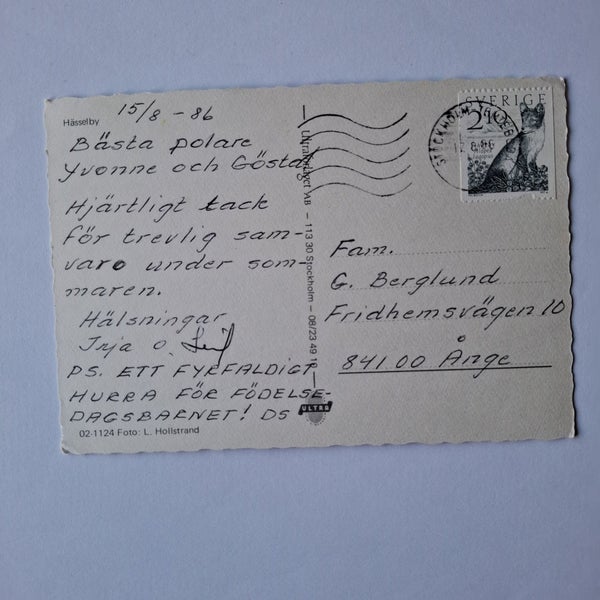 Hässelby
15/8 - 86
Bästa polare
Yvonne och Gösta
Hjärtligt tack
för trevlig sam-
varo under som-
maren.
Hälsningar
Inja o.
PS. ETT FYRFALDIGT
HURRA FÖR FÖDELSE-
DAGSBARNET! DS
02-1124 Foto: L. Hollstrand
AB - 113 30 Stockholm - 08/23 49 10
ULTRA
SVERIGE
STOCKHOLM
Fam.
G. Berglund
Fridhemsvägen 10
841 00 Ånge